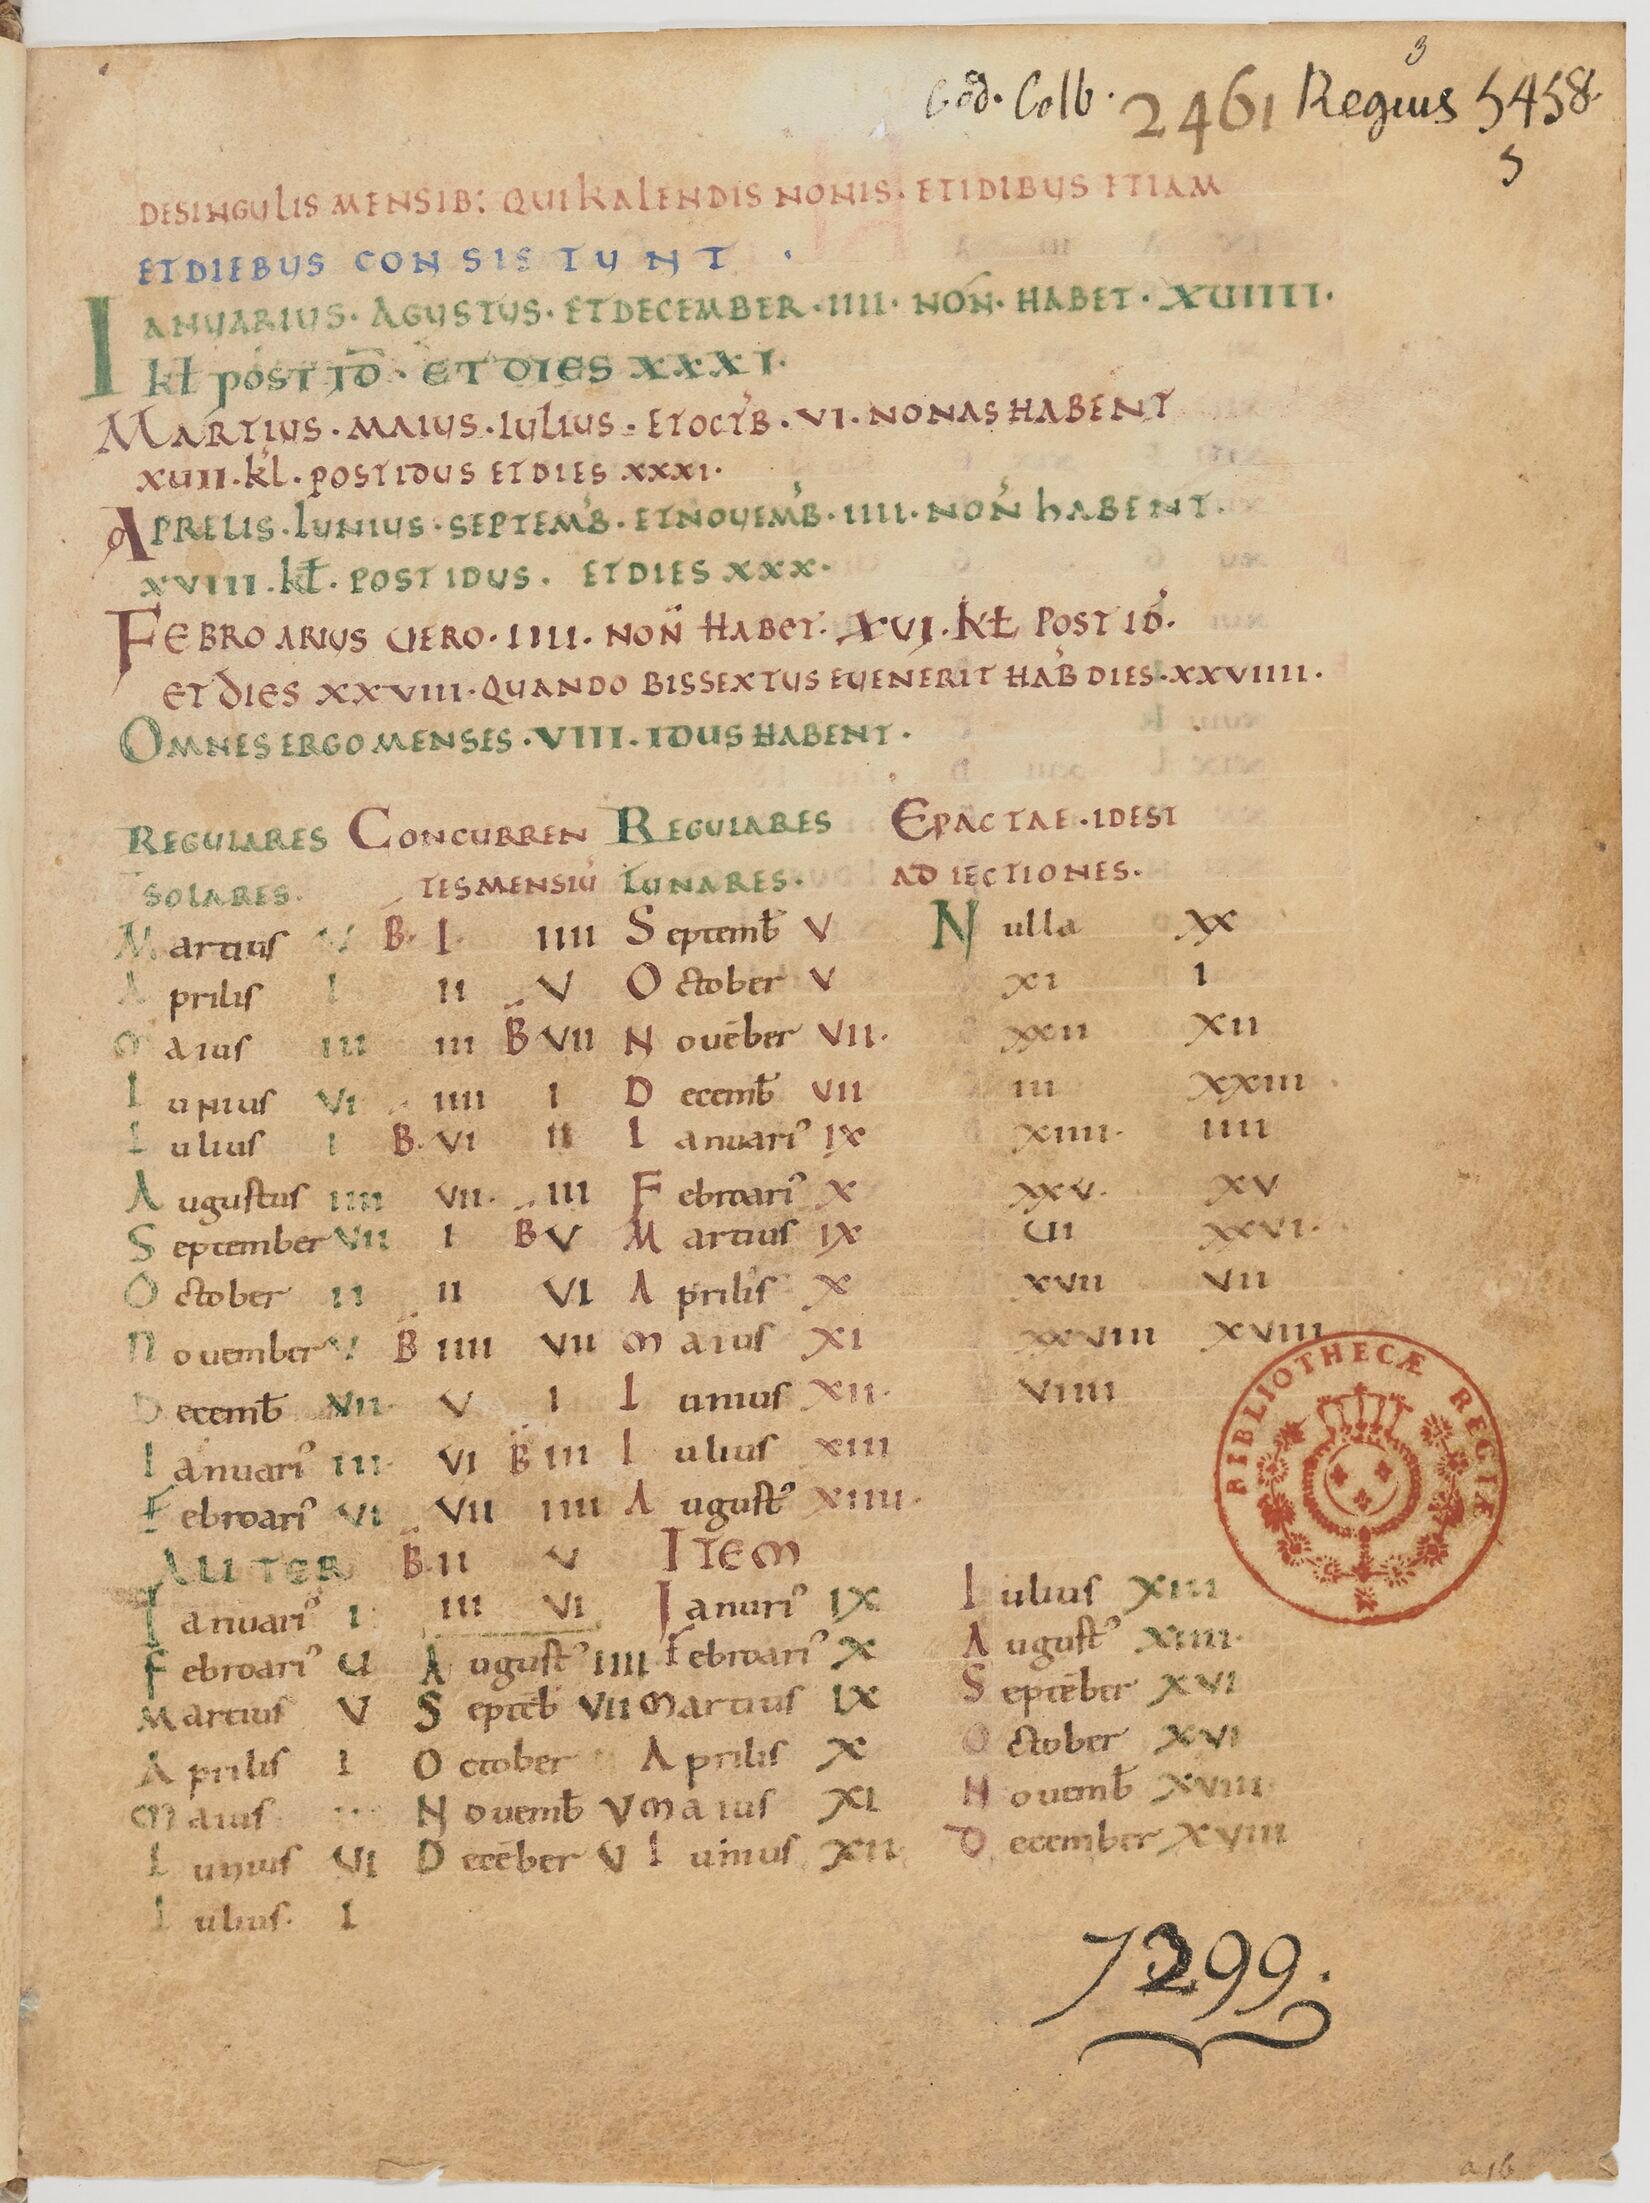 3
Cod. Colb. 2461 Regius 5458.
5
DESINGULIS MENSIB; QUI KALENDIS NONIS. ETIDIBUS ETIAM
ETDIEBUS CONSISTUNT .
IANUARIUS. AGUSTUS. ETDECEMBER. IIII. NON. HABET. XUIIII.
kł POST ID. ET DIES XXXI.
MARTIUS. MAIUS. IULIUS. ETOCTB. VI. NONAS HABENT
XUII. kl. POST IDUS ET DIES XXXI.
APRELIS. IUNIUS. SEPTEMB. ETNOUEMB. IIII. NON HABENT.
XVIII. kł. POST IDUS. ETDIES XXX.
FEBROARIUS UERO. IIII. NON HABET. XVI. Kł POST ID.
ET DIES XXVIII. QUANDO BISSEXTUS EUENERIT HAB DIES. XXVIIII.
OMNES ERGO MENSES. VIII. IDUS HABENT.
REGULARES CONCURREN REGULARES EPACTAE. IDEST
SOLARES. TESMENSIU LUNARES. ADIECTIONES.
Martius V B. I. IIII Septemb V Nulla XX
Aprilis I II V October V XI I
Maius III III B VII Novēber VII. XXII XII
Iunius VI IIII I Decemb VII III XXIII
Iulius I B. VI II Ianuari' IX XIIII. IIII
Augustus IIII VII. III Febroari' X XXV. XV
September VII I B V Martius IX UI XXVI.
October II II VI Aprilis X XVII VII
November V B IIII VII Maius XI XXVIII XVIII
Decemb VII. V I Iunius XII. VIIII
Ianuari' III. VI B III Iulius XIII
Febroari' VI VII IIII August' XIIII.
ALITER B. II V ITEM
Ianuari' I III VI Ianuri' IX Iulius XIII
Febroari' U August' IIII Febroari' X August' XIIII.
Martius V Septēb VII Martius IX Septēber XVI
Aprilis I October Aprilis X October XVI
Maius Novemb V Maius XI Novemb XVIII.
Iunius VI Decēber V Iunius XII. December XVIII
Iulius. I
BIBLIOTHECÆ REGIÆ
7299.